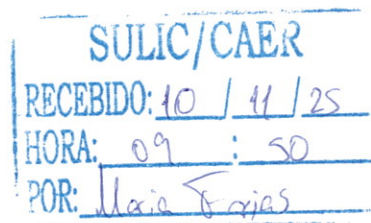 SULIC/CAER
RECEBIDO: 10 / 11 / 25
HORA: 09 : 50
POR: Maria Farias